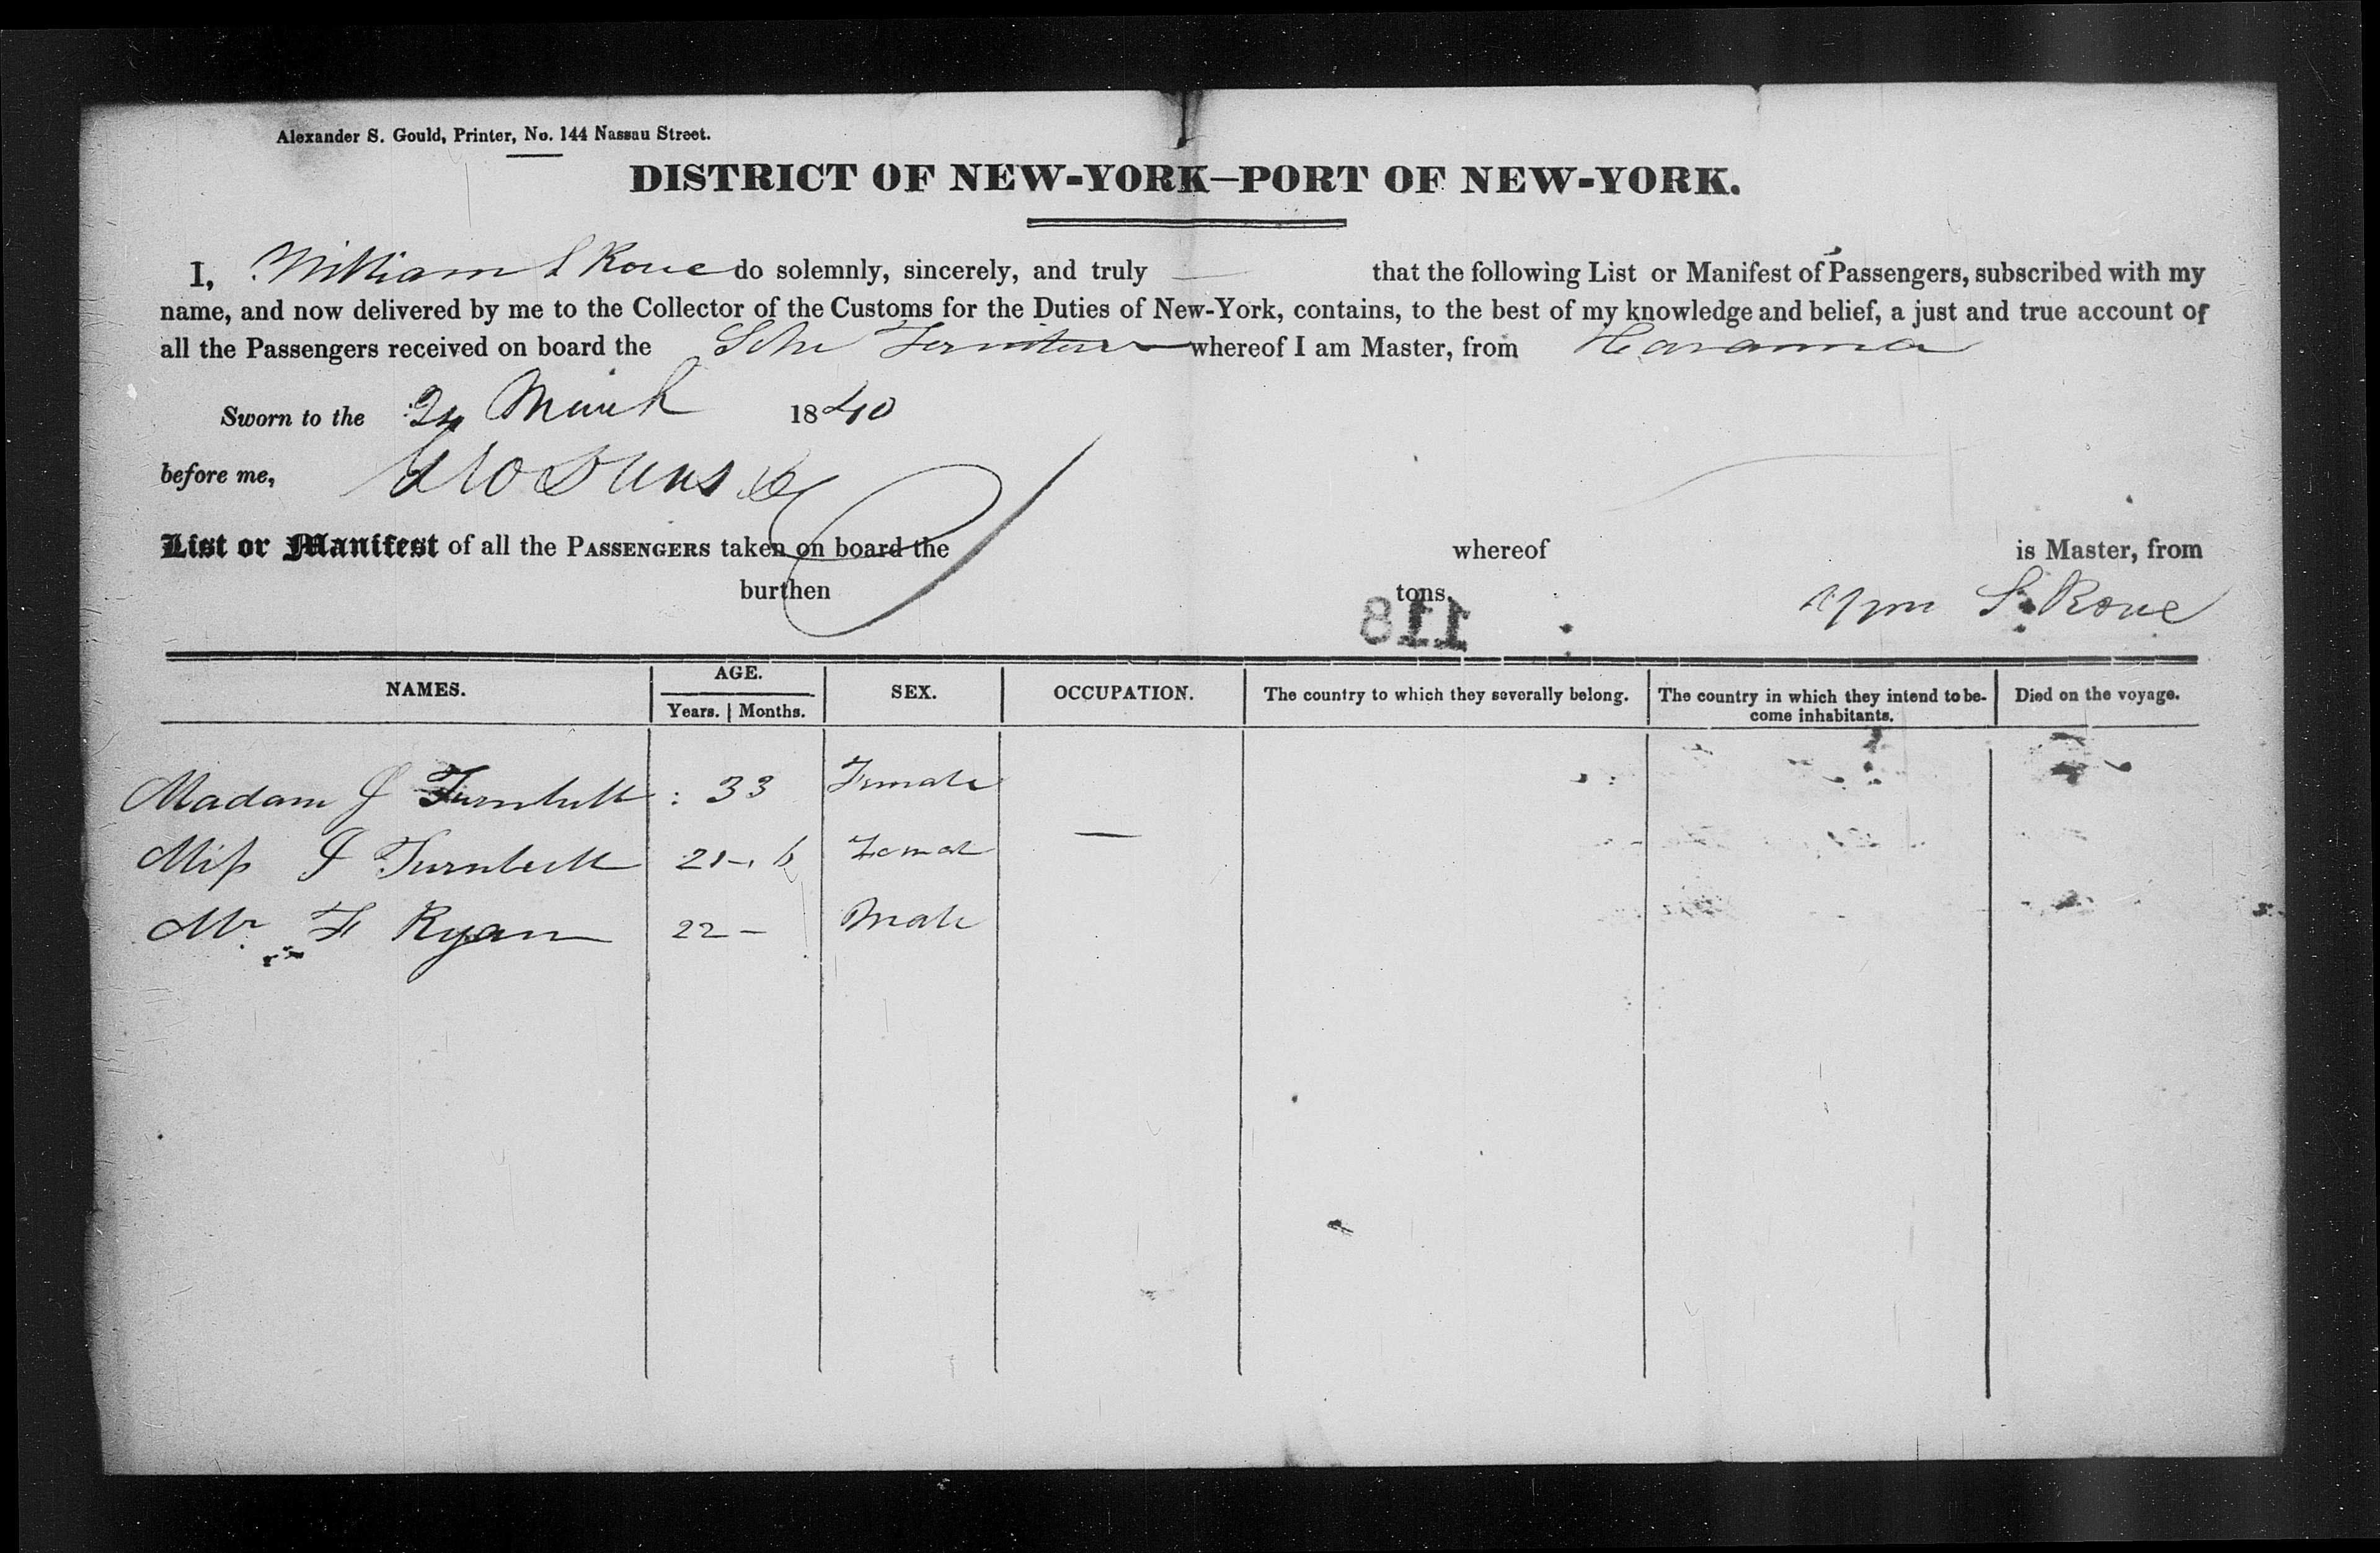 Alexander S. Gould, Printer, No. 144 Nassau Street.
DISTRICT OF NEW-YORK—PORT OF NEW-YORK.
I, William S Rowe do solemnly, sincerely, and truly — that the following List or Manifest of Passengers, subscribed with my
name, and now delivered by me to the Collector of the Customs for the Duties of New-York, contains, to the best of my knowledge and belief, a just and true account of
all the Passengers received on board the Schr whereof I am Master, from Havanna
Sworn to the 24 March 1840
before me,
List or Manifest of all the PASSENGERS taken on board the whereof is Master, from
burthen tons.
118
Wm S. Rowe
NAMES. AGE. SEX. OCCUPATION. The country to which they severally belong. The country in which they intend to be- Died on the voyage.
Years. Months. come inhabitants.
Madam J Turnbull : 33 Female
Miss J Turnbull 21 -. 6 Femal —
Mr F Ryan 22 - Male